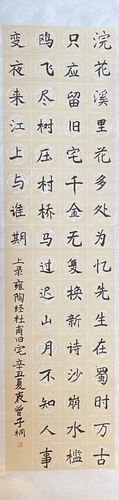 浣花溪里花多处为忆先生在蜀时万古
只应留旧宅千金无复换新诗沙崩水槛
鸥飞尽树压村桥马过迟山月不知人事
变夜来江上与谁期
上录雍陶经杜甫旧宅辛丑夏月曾子桐